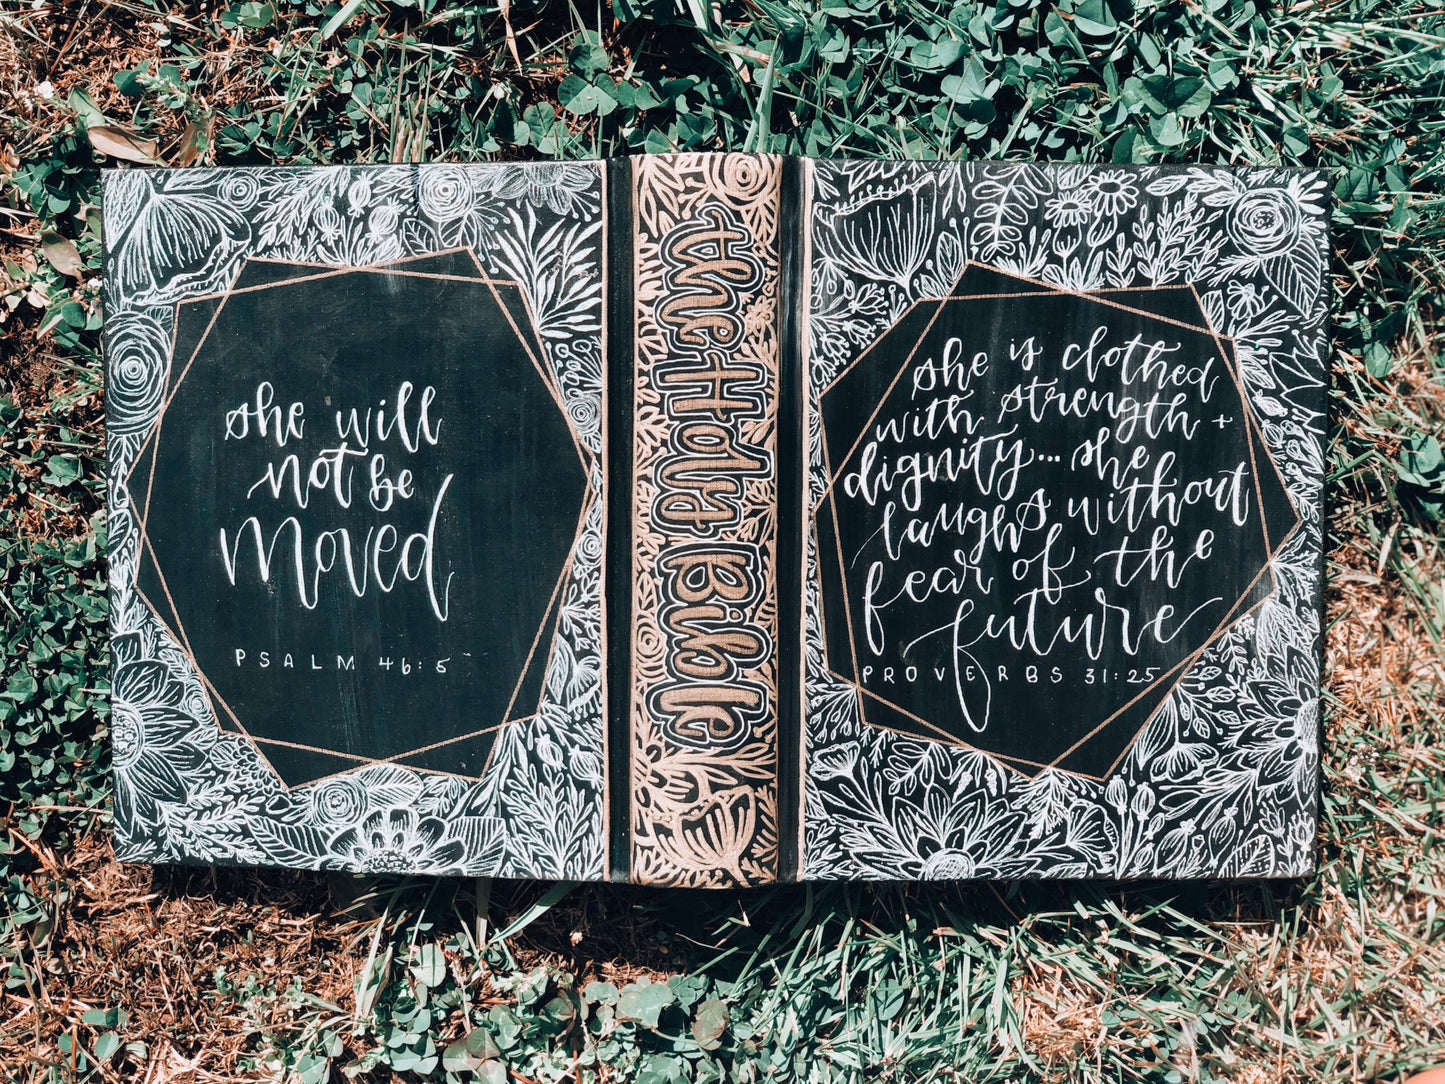 she will
not be
moved
PSALM 46:5
the Holy Bible
she is clothed
with strength +
dignity... she
laughs without
fear of the
future
PROVERBS 31:25